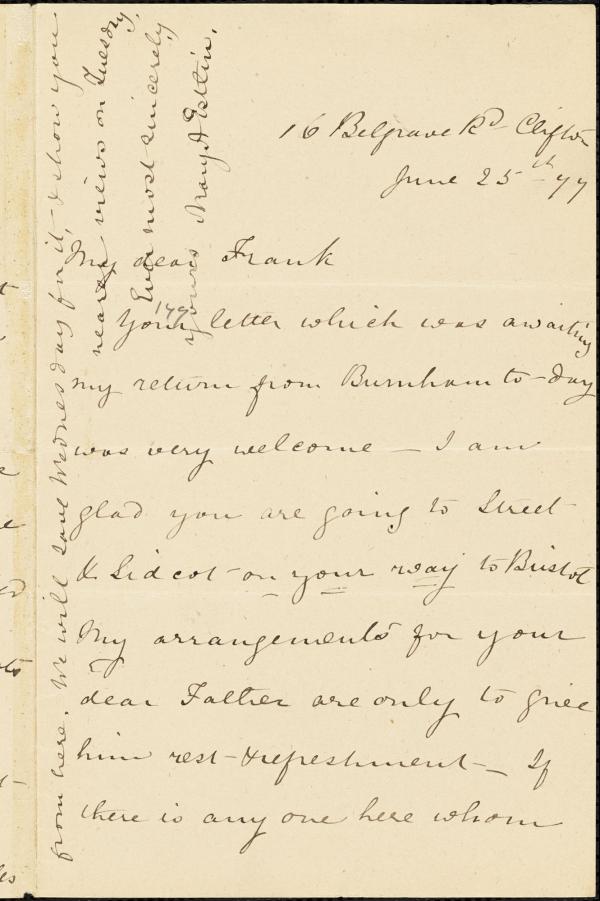 16 Belgrave Rd Clifton
June 25th 77
My dear Frank
Your letter which was awaiting
my return from Burnham to-day
was very welcome — I am
glad you are going to Street
& Sidcot on your way to Bristol
My arrangements for your
dear Father are only to give
him rest & refreshment — If
there is any one here whom
from here. We will save Wednesday for it, & show you
nearer views on Tuesday,
Ever most sincerely
yours Mary A Estlin.
179